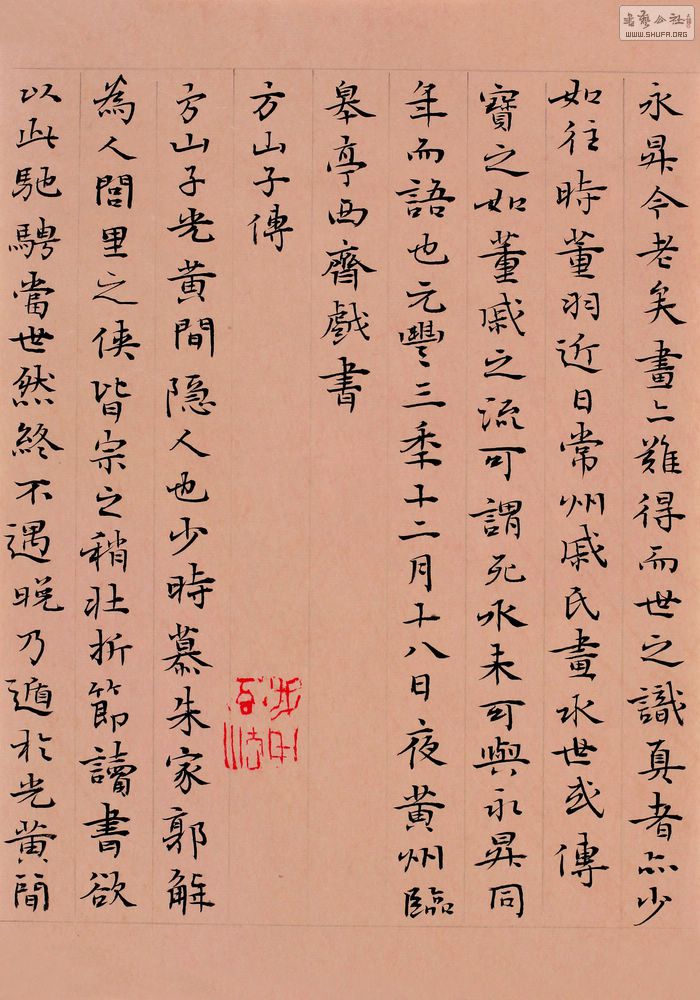 永昇今老矣畫亦難得而世之識真者亦少
如往時董羽近日常州戚氏畫水世或傳
寶之如董戚之流可謂死水未可與永昇同
年而語也元豐三秊十二月十八日夜黃州臨
皋亭西齋戲書
方山子傳
方山子光黃間隱人也少時慕朱家郭解
為人閭里之俠皆宗之稍壯折節讀書欲
以此馳騁當世然終不遇晚乃遁於光黃間
書藝公社
WWW.SHUFA.ORG